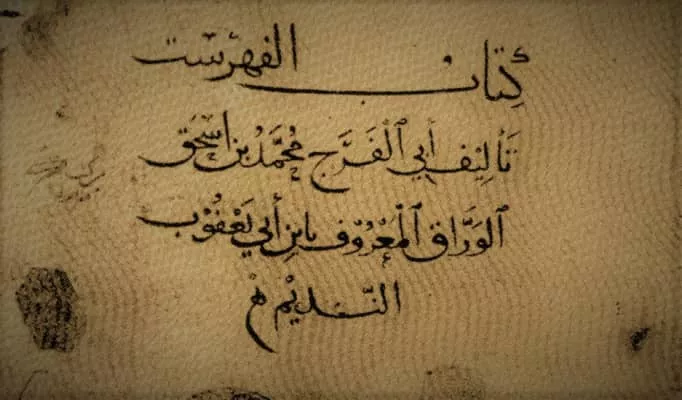 كِتاب الفهرست
تَألِيف أبي الفَرَج مُحَمَّد بن اسحق
الوَرَّاق المَعْرُوف بابنِ أبي يَعْقُوب
النَّديم